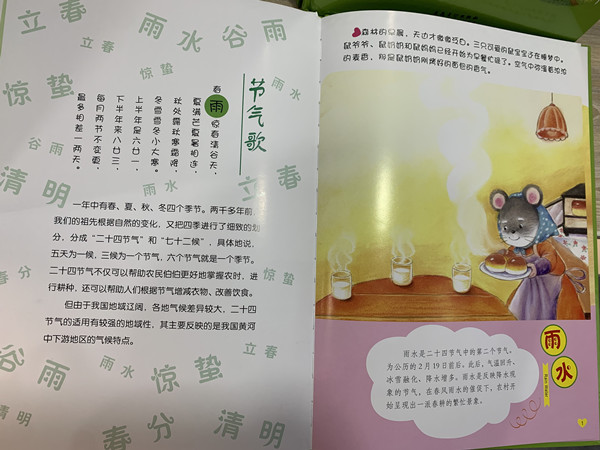 立春
雨水
谷雨
惊蛰
惊蛰
雨水
节气歌
春雨惊春清谷天，
夏满芒夏暑相连，
秋处露秋寒霜降，
冬雪雪冬小大寒。
上半年是六廿一，
下半年来八廿三，
每月两节不变更，
最多相差一两天。
谷雨
立春
清明
雨水
一年中有春、夏、秋、冬四个季节。两千多年前，
我们的祖先根据自然的变化，又把四季进行了细致的划
分，分成“二十四节气”和“七十二候”，具体地说，
五天为一候，三候为一个节气，六个节气就是一个季节。
二十四节气不仅可以帮助农民伯伯更好地掌握农时，进
行耕种，还可以帮助人们根据节气增减衣物、改善饮食。
但由于我国地域辽阔，各地气候差异较大，二十四
节气的适用有较强的地域性，其主要反映的是我国黄河
中下游地区的气候特点。
春分
惊蛰
立春
谷雨
雨水
惊蛰
谷雨
清明
春分
清明
森林的早晨，天边才微微泛白。三只可爱的鼠宝宝还在睡梦中。
鼠爷爷、鼠奶奶和鼠妈妈已经开始为早餐忙碌了。空气中弥漫着浓浓
的麦香，那是鼠奶奶刚烤好的面包的香气。
雨水
雨水是二十四节气中的第二个节气，
为公历的2月19日前后。此后，气温回升、
冰雪融化、降水增多。雨水是反映降水现
象的节气，在春风雨水的催促下，农村开
始呈现出一派春耕的繁忙景象。
1